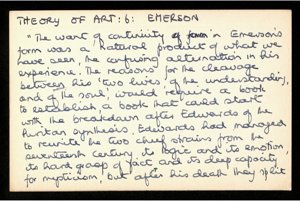 THEORY OF ART: 6: EMERSON
"The want of continuity of form in Emerson's
form was a natural product of what we
have seen, the confusing alternation in his
experience. The reasons for the cleavage
between his 'two lives, of the understanding,
and of the soul' would require a book
to establish, a book that could start
with the breakdown after Edwards of the
Puritan synthesis. Edwards had managed
to reunite the two chief strains from the
seventeenth century, its logic and its emotion,
its hard grasp of fact and its deep capacity
for mysticism; but after his death they split